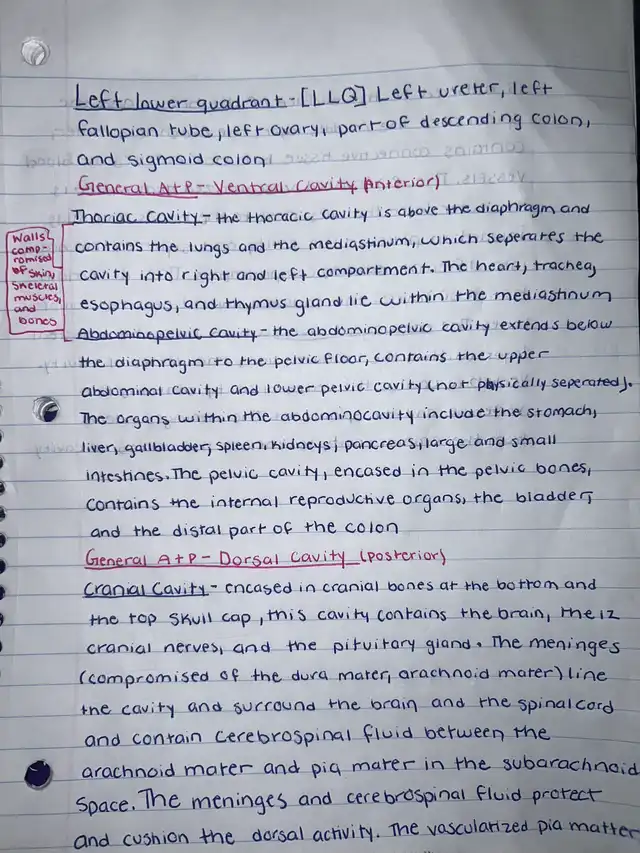 Left lower quadrant - [LLQ] Left ureter, left
fallopian tube, left ovary, part of descending colon,
and sigmoid colon
General A+P - Ventral Cavity (Anterior)
Thoriac Cavity - the thoracic cavity is above the diaphragm and
contains the lungs and the mediastinum, which seperates the
cavity into right and left compartment. The heart, trachea,
esophagus, and thymus gland lie within the mediastinum
Walls
comp-
romised
of skin,
skeletal
muscles,
and
bones
Abdominopelvic Cavity - the abdominopelvic cavity extends below
the diaphragm to the pelvic floor, contains the upper
abdominal cavity and lower pelvic cavity (not physically seperated).
The organs within the abdominocavity include the stomach,
liver, gallbladder, spleen, kidneys, pancreas, large and small
intestines. The pelvic cavity, encased in the pelvic bones,
contains the internal reproductive organs, the bladder,
and the distal part of the colon
General A+P - Dorsal Cavity (posterior)
Cranial Cavity - encased in cranial bones at the bottom and
the top skull cap, this cavity contains the brain, the 12
cranial nerves, and the pituitory gland. The meninges
(compromised of the dura mater, arachnoid mater) line
the cavity and surround the brain and the spinal cord
and contain cerebrospinal fluid between the
arachnoid mater and pia mater in the subarachnoid
space. The meninges and cerebrospinal fluid protect
and cushion the dorsal activity. The vascularized pia matter